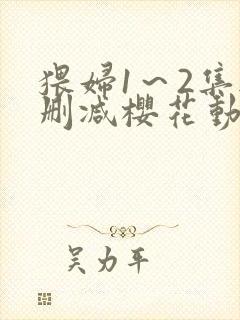 猥婦1～2集
删减櫻花動
吴力平